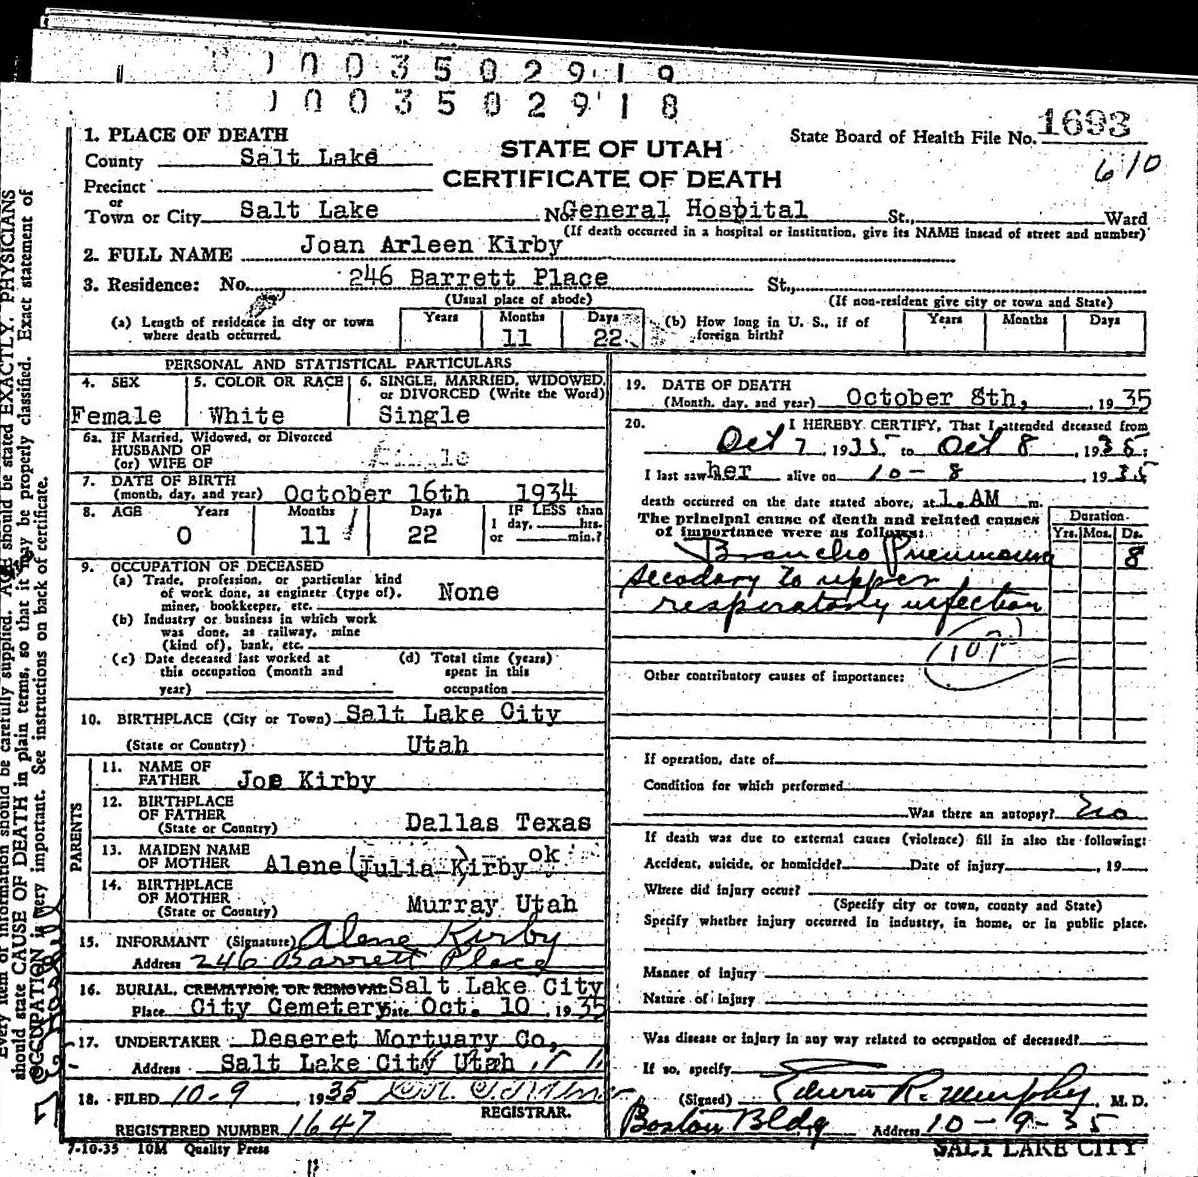 1 0 0 3 5 0 2 9 1 9
1 0 0 3 5 0 2 9 1 8
1. PLACE OF DEATH
County Salt Lake
Precinct
or
Town or City Salt Lake No. General Hospital St., Ward
(If death occurred in a hospital or institution, give its NAME insead of street and number)
STATE OF UTAH
CERTIFICATE OF DEATH
State Board of Health File No. 1693
610
2. FULL NAME Joan Arleen Kirby
3. Residence: No. 246 Barrett Place St.,
(Usual place of abode) (If non-resident give city or town and State)
(a) Length of residence in city or town where death occurred. Years Months 11 Days 22
(b) How long in U. S., if of foreign birth? Years Months Days
PERSONAL AND STATISTICAL PARTICULARS
4. SEX Female
5. COLOR OR RACE White
6. SINGLE, MARRIED, WIDOWED, or DIVORCED (Write the Word) Single
6a. IF Married, Widowed, or Divorced
HUSBAND OF
(or) WIFE OF Single
7. DATE OF BIRTH
(month, day, and year) October 16th 1934
8. AGE Years 0 Months 11 Days 22
IF LESS than
1 day, hrs.
or min.?
9. OCCUPATION OF DECEASED
(a) Trade, profession, or particular kind
of work done, as engineer (type of),
miner, bookkeeper, etc. None
(b) Industry or business in which work
was done, as railway, mine
(kind of), bank, etc.
(c) Date deceased last worked at
this occupation (month and
year)
(d) Total time (years)
spent in this
occupation
10. BIRTHPLACE (City or Town) Salt Lake City
(State or Country) Utah
PARENTS
11. NAME OF
FATHER Joe Kirby
12. BIRTHPLACE
OF FATHER
(State or Country) Dallas Texas
13. MAIDEN NAME
OF MOTHER Alene (Julia Kirby) ok
14. BIRTHPLACE
OF MOTHER
(State or Country) Murray Utah
15. INFORMANT (Signature) Alene Kirby
Address 246 Barrett Place
16. BURIAL, CREMATION, OR REMOVAL Salt Lake City
Place City Cemetery Date Oct. 10, 1935
17. UNDERTAKER Deseret Mortuary Co,
Address Salt Lake City Utah
18. FILED 10-9, 1935
REGISTRAR.
REGISTERED NUMBER 1647
7-10-35 10M Quality Press
19. DATE OF DEATH
(Month, day, and year) October 8th, , 1935
20. I HEREBY CERTIFY, That I attended deceased from
Oct 7, 1935 to Oct 8, 1935;
I last saw her alive on 10-8 1935
death occurred on the date stated above, at 1. AM m.
The principal cause of death and related causes
of importance were as follows:
Duration
Yrs. Mos. Ds.
Broncho Pneumonia 8
secodary to upper
respiratory infection
107
Other contributory causes of importance:
If operation, date of
Condition for which performed
Was there an autopsy? no
If death was due to external causes (violence) fill in also the following:
Accident, suicide, or homicide? Date of injury , 19
Where did injury occur?
(Specify city or town, county and State)
Specify whether injury occurred in industry, in home, or in public place.
Manner of injury
Nature of injury
Was disease or injury in any way related to occupation of deceased?
If so, specify
(Signed) Edwin R. Murphy, M. D.
Boston Bldg Address 10-9-35
SALT LAKE CITY
Every item of information should be carefully supplied. AGE should be stated EXACTLY. PHYSICIANS
should state CAUSE OF DEATH in plain terms, so that it may be properly classified. Exact statement of
OCCUPATION is very important. See instructions on back of certificate.